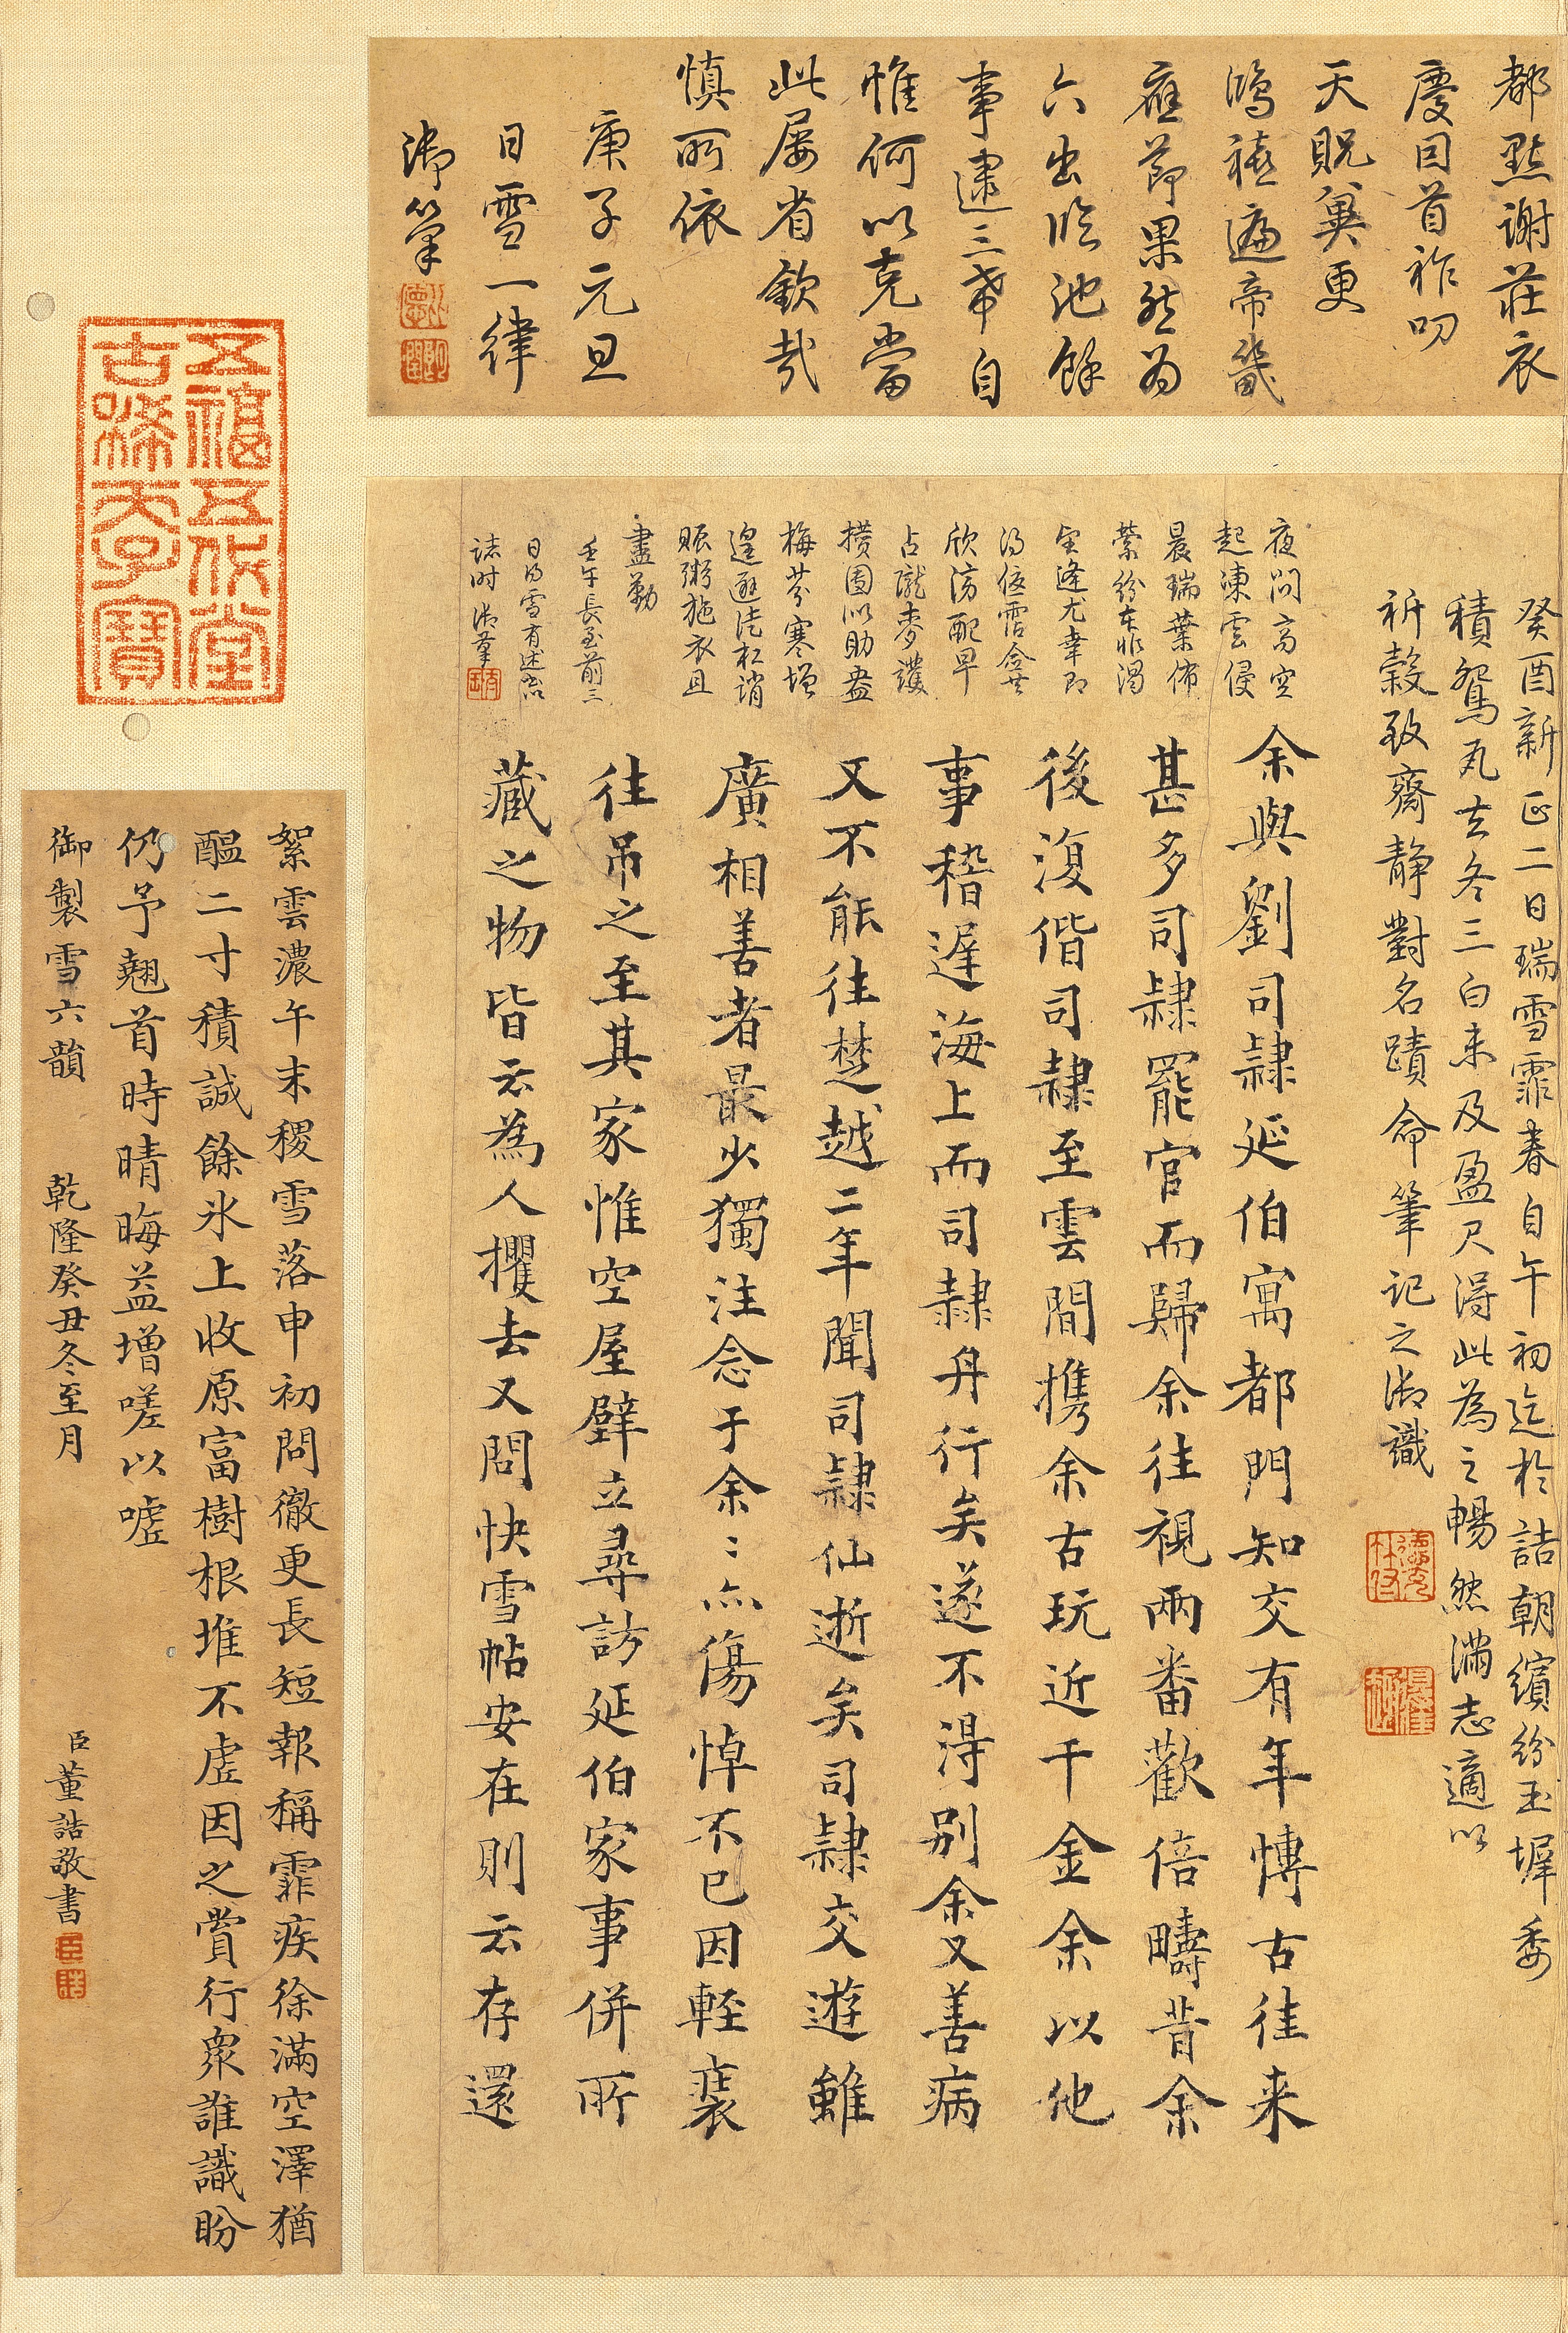 都點謝莊衣
慶因首祚叨
天貺冀更
鴻禧遍帝畿
應節果然為
六出臨池餘
事逮三希自
惟何以克當
此屢省欽哉
慎所依
庚子元旦
日雪一律
御筆
癸酉新正二日瑞雪霏春自午初迄於詰朝繽紛玉墀委
積鴛瓦去冬三白未及盈尺得此為之暢然滿志適以
祈穀致齋靜對名蹟命筆記之御識
夜問高空
起凍雲侵
晨瑞葉佈
縈紛幸非渴
望逢尤幸即
得優霑僉共
欣滂配早
占隴麥護
擴園以助盎
梅芬寒增
遑避徒杠誚
賑粥施衣且
盡勤
壬午長至前三
日得雪有述書以
誌時御筆
余與劉司隸延伯寓都門知交有年博古往来
甚多司隸罷官而歸余往視兩番歡倍疇昔余
後復偕司隸至雲間携余古玩近千金余以他
事稽遲海上而司隸舟行矣遂不得别余又善病
又不能往楚越二年聞司隸仙逝矣司隸交遊雖
廣相善者最少獨注念于余〻亦傷悼不已因輕裘
往吊之至其家惟空屋壁立尋訪延伯家事併所
藏之物皆云為人攫去又問快雪帖安在則云存還
五福五代堂
古稀天子寶
絮雲濃午末稷雪落申初問徹更長短報稱霏疾徐滿空澤猶
醞二寸積誠餘氷上收原富樹根堆不虛因之賞行衆誰識盼
仍予翹首時晴晦益增嗟以噓
御製雪六韻　乾隆癸丑冬至月　臣董誥敬書